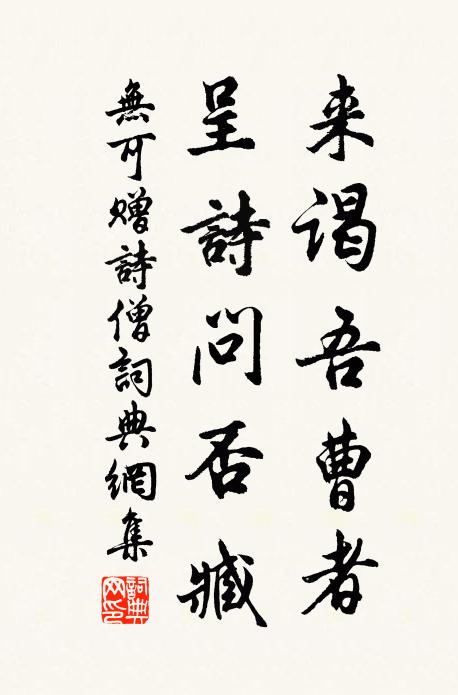 来谒吾曹者
呈詩問否臧
無可贈詩僧詞典網集
詞典网印